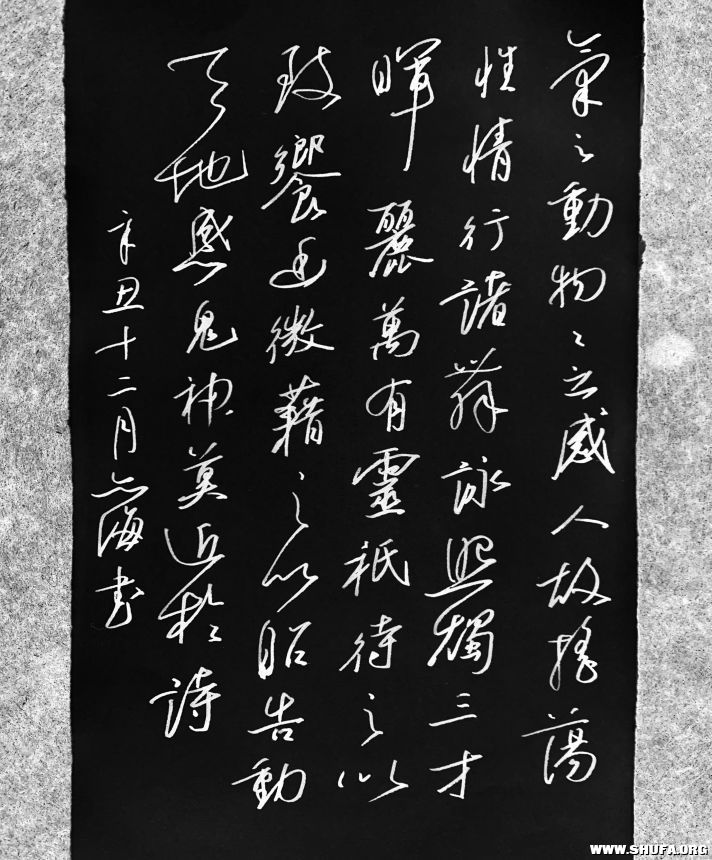 氣之動物々之感人故搖蕩
性情行諸舞詠照燭三才
暉麗萬有靈祇待之以
致饗幽微藉之以昭告動
天地感鬼神莫近於詩
辛丑十二月海书
WWW.SHUFA.ORG